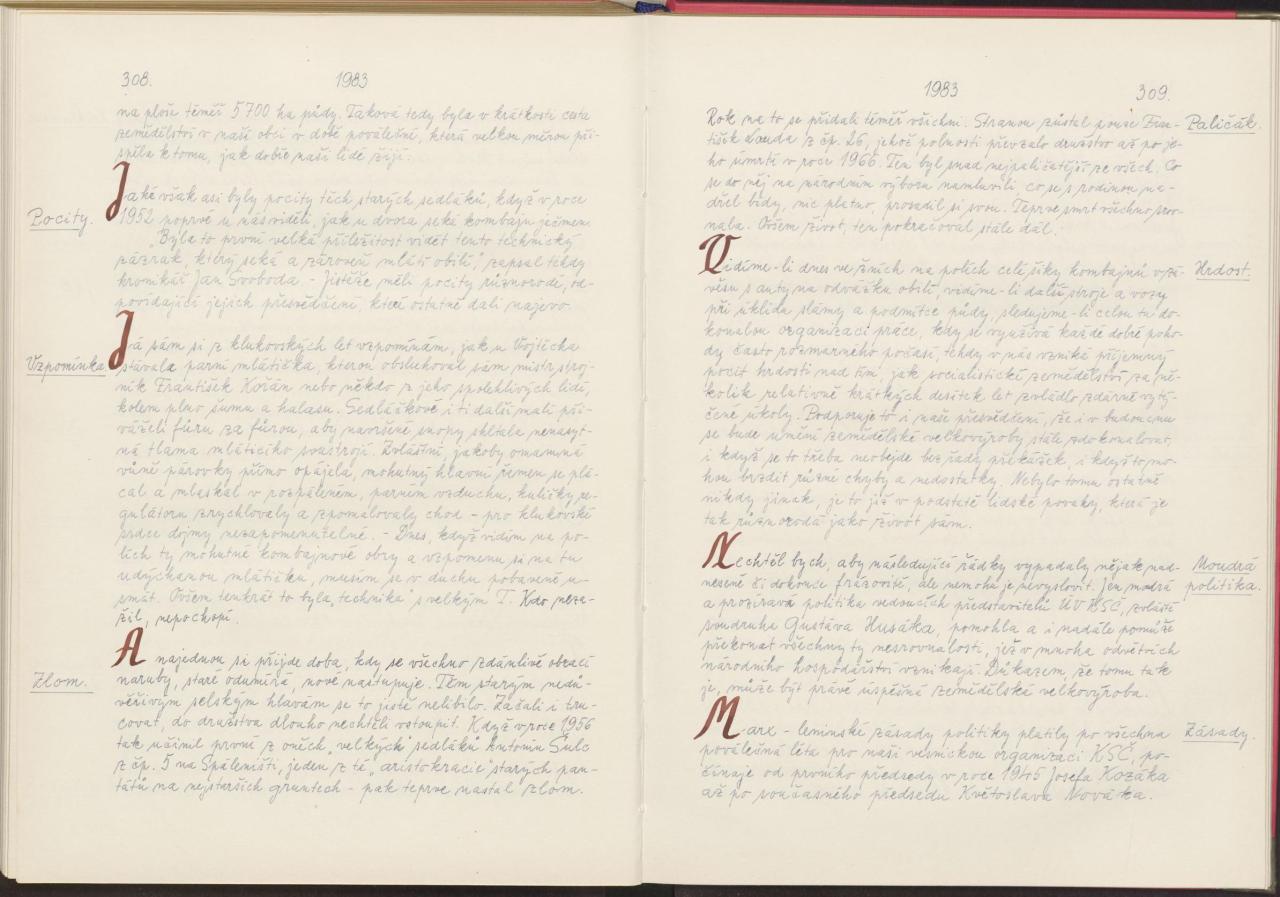 308.
1983
na ploše téměř 5700 ha půdy. Taková tedy byla v krátkosti cesta
zemědělství v naší obci v době poválečné, která velkou měrou při-
spěla k tomu, jak dobře naši lidé žijí.
Pocity.
Jaké však asi byly pocity těch starých sedláků, když v roce
1952 poprvé u nás viděli, jak u dvora seká kombajn ječmen.
"Byla to první velká příležitost vidět tento technický
zázrak, který seká a zároveň mlátí obilí," zapsal tehdy
kronikář Jan Svoboda - Jistěže měli pocity různorodé, od-
povídající jejich přesvědčení, které ostatně dali najevo.
Vzpomínka
Já sám si z klukovských let vzpomínám, jak u Vojtěcha
stávala parní mlátička, kterou obsluhoval sám mistr stroj-
ník František Kožám nebo někdo z jeho spolehlivých lidí,
kolem plno šumu a halasu. Sedláčkové i ti další malí při-
váželi fůru za fůrou, aby navršené snopy shltala nenasyt-
ná tlama mláticího soustrojí. Zvláštní, jakoby omamná
vůně párovky přímo opájela, mohutný hlavní řemen se plá-
cal a mlaskal v rozpáleném, parném vzduchu, kuličky re-
gulátoru zrychlovaly a zpomalovaly chod - pro klukovské
srdce dojmy nezapomenutelné. - Dnes, když vidím na po-
lích ty mohutné kombajnové obry a vzpomenu si na tu
udýchanou mlátičku, musím se v duchu pobaveně u-
smát. Ovšem tenkrát to byla "technika" s velkým T. Kdo neza-
žil, nepochopí.
Zlom.
A najednou si přijde doba, kdy se všechno zdánlivě obrací
naruby, staré odumírá, nové nastupuje. Těm starým nedů-
věřivým selským hlavám se to jistě nelíbilo. Začali i tru-
covat, do družstva dlouho nechtěli vstoupit. Když v roce 1956
tak učinil první z oněch "velkých" sedláků Antonín Šulc
z čp. 5 na Spáleništi, jeden z té "aristokracie" starých pan-
tátů na nejstarších gruntech - pak teprve nastal zlom.
1983
309.
Rok na to se přidali téměř všichni. Stranou zůstal pouze Fran-
Paličák.
tišek Louda z čp. 26, jehož polnosti převzalo družstvo až po je-
ho úmrtí v roce 1966. Ten byl snad nejpaličatější ze všech. Co
se do něj na národním výboru namluvili, co se s rodinou na-
dřel bídy, nic platno, prosadil si svou. Teprve smrt všechno srov-
nala. Ovšem život, ten pokračoval stále dál.
Hrdost.
Vidíme-li dnes ve žních na polích celé šiky kombajnů v zá-
věsu s auty na odvážku obilí, vidíme-li další stroje a vozy
při úklidu slámy a podmítce půdy, sledujeme-li celou tu do-
konalou organizaci práce, kdy se využívá každé dobré poho-
dy často rozmarného počasí, tehdy v nás vzniká příjemný
pocit hrdosti nad tím, jak socialistické zemědělství za ně-
kolik relativně krátkých desítek let zvládlo zdárně vytý-
čené úkoly. Podporuje to i naše přesvědčení, že i v budoucnu
se bude umění zemědělské velkovýroby stále zdokonalovat,
i když se to třeba neobejde bez řady překážek, i když to mo-
hou brzdit různé chyby a nedostatky. Nebylo tomu ostatně
nikdy jinak, je to již v podstatě lidské povahy, která je
tak různorodá jako život sám.
Moudrá
politika.
Nechtěl bych, aby následující řádky vypadaly nějak nad-
neseně či dokonce frázovitě, ale nemohu je nevyslovit. Jen moudrá
a prozíravá politika vedoucích představitelů ÚV KSČ, zvláště
soudruha Gustáva Husáka, pomohla a i nadále pomůže
překonat všechny ty nesrovnalosti, jež v mnoha odvětvích
národního hospodářství vznikají. Důkazem, že tomu tak
je, může být právě úspěšná zemědělská velkovýroba.
Zásady.
Marx-leninské zásady politiky platily po všechna
poválečná léta pro naši vesnickou organizaci KSČ, po-
čínaje od prvního předsedy v roce 1945 Josefa Kozáka
až po současného předsedu Květoslava Nováka.